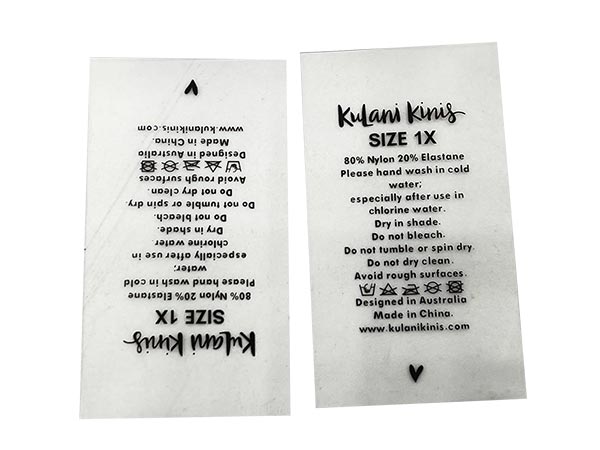 Kulani Kinis
SIZE 1X
80% Nylon 20% Elastane
Please hand wash in cold
water;
especially after use in
chlorine water.
Dry in shade.
Do not bleach.
Do not tumble or spin dry.
Do not dry clean.
Avoid rough surfaces.
Designed in Australia
Made in China.
www.kulanikinis.com
Kulani Kinis
SIZE 1X
80% Nylon 20% Elastane
Please hand wash in cold
water;
especially after use in
chlorine water.
Dry in shade.
Do not bleach.
Do not tumble or spin dry.
Do not dry clean.
Avoid rough surfaces.
Designed in Australia
Made in China.
www.kulanikinis.com